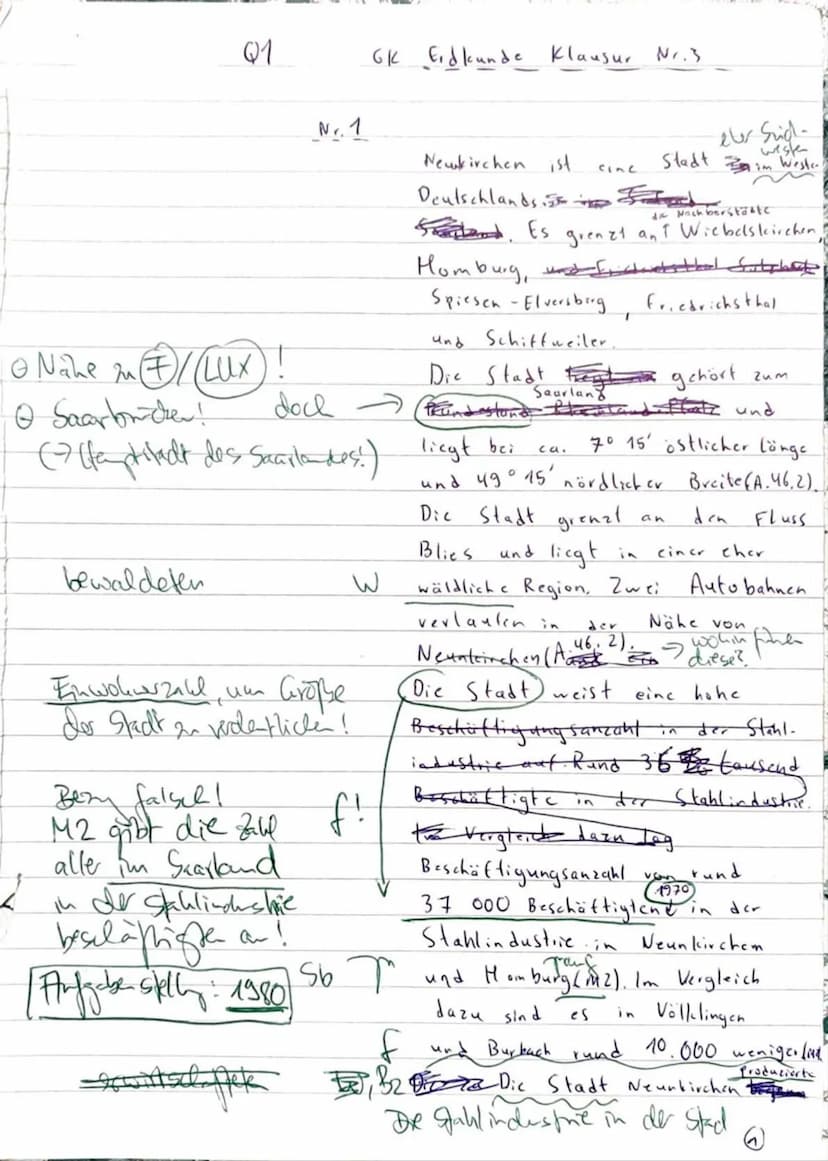 Q1 GK Erdkunde Klausur Nr. 3
Nr. 1
eher Süd-
westen
Neunkirchen ist eine Stadt im Westen
Deutschlands.
die Nachbarstädte
Es grenzt an Wiebelskirchen,
Homburg,
Spiesen-Elversberg, Friedrichsthal
und Schiffweiler.
⊖ Nähe zu F/LUX!
Die Stadt gehört zum
⊖ Saarbrücken! doch →
Saarland
Bundesland Rheinland-Pfalz und
(→ Hauptstadt des Saarlandes!)
liegt bei ca. 7° 15' östlicher Länge
und 49° 15' nördlicher Breite (A.46,2).
Die Stadt grenzt an den Fluss
Blies und liegt in einer eher
bewaldeten W
wäldliche Region. Zwei Autobahnen
verlaufen in der Nähe von
Neunkirchen (A.46,2).
→ wohin führen
diese?
Einwohnerzahl, um Größe
der Stadt zu verdeutlichen!
Die Stadt weist eine hohe
Beschäftigungsanzahl in der Stahl-
industrie auf. Rund 36 tausend
Beschäftigte in der Stahlindustrie.
Im Vergleich dazu lag
Bezug falsch! f!
M2 gibt die Zahl
aller im Saarland
in der Stahlindustrie
beschäftigten an!
Beschäftigungsanzahl von rund
1970
37 000 Beschäftigtend in der
Stahlindustrie in Neunkirchen
Aufgabenstellung: 1980 Sb
und Homburg (M2). Im Vergleich
dazu sind es in Völklingen
f
und Burbach rund 10.000 weniger
B2
Die Stadt Neunkirchen
produzierte
Die Stahlindustrie in der Stad
1